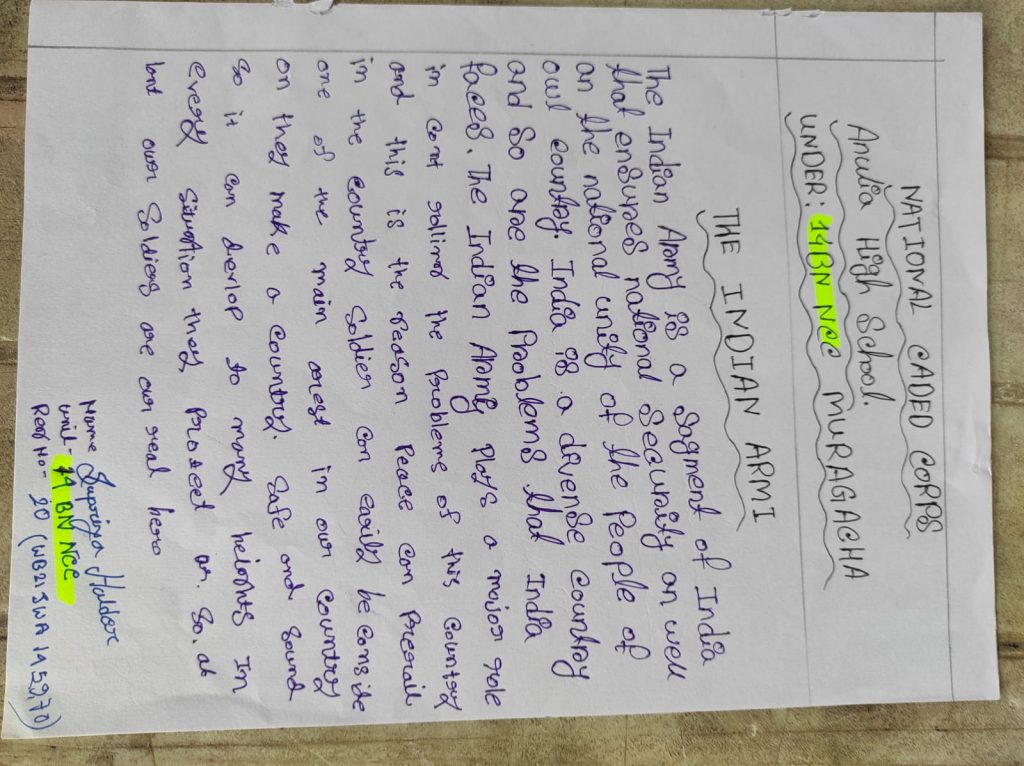 NATIONAL CADED CORPS
Anulia High School.
UNDER: 14BN NCC MURAGACHA
THE INDIAN ARMI
The Indian Army is a sagment of India
that ensures national security an well
an the national unity of the People of
owl country. India is a divense country
and so are the Problems that India
faces. The Indian Army Plays a major role
in cont the problems of this country
and this is the reason Peace can Prevail
in the country soldier can easily be conside
one of the main in our country
on they make a country. safe and sound
so it can devlop to many heights In
every they protect So. at
own Soldiers are our real hero
Name Supriya Halder
unit - 14 BN NCC
Reg No - 20 (WB21SWA145970)